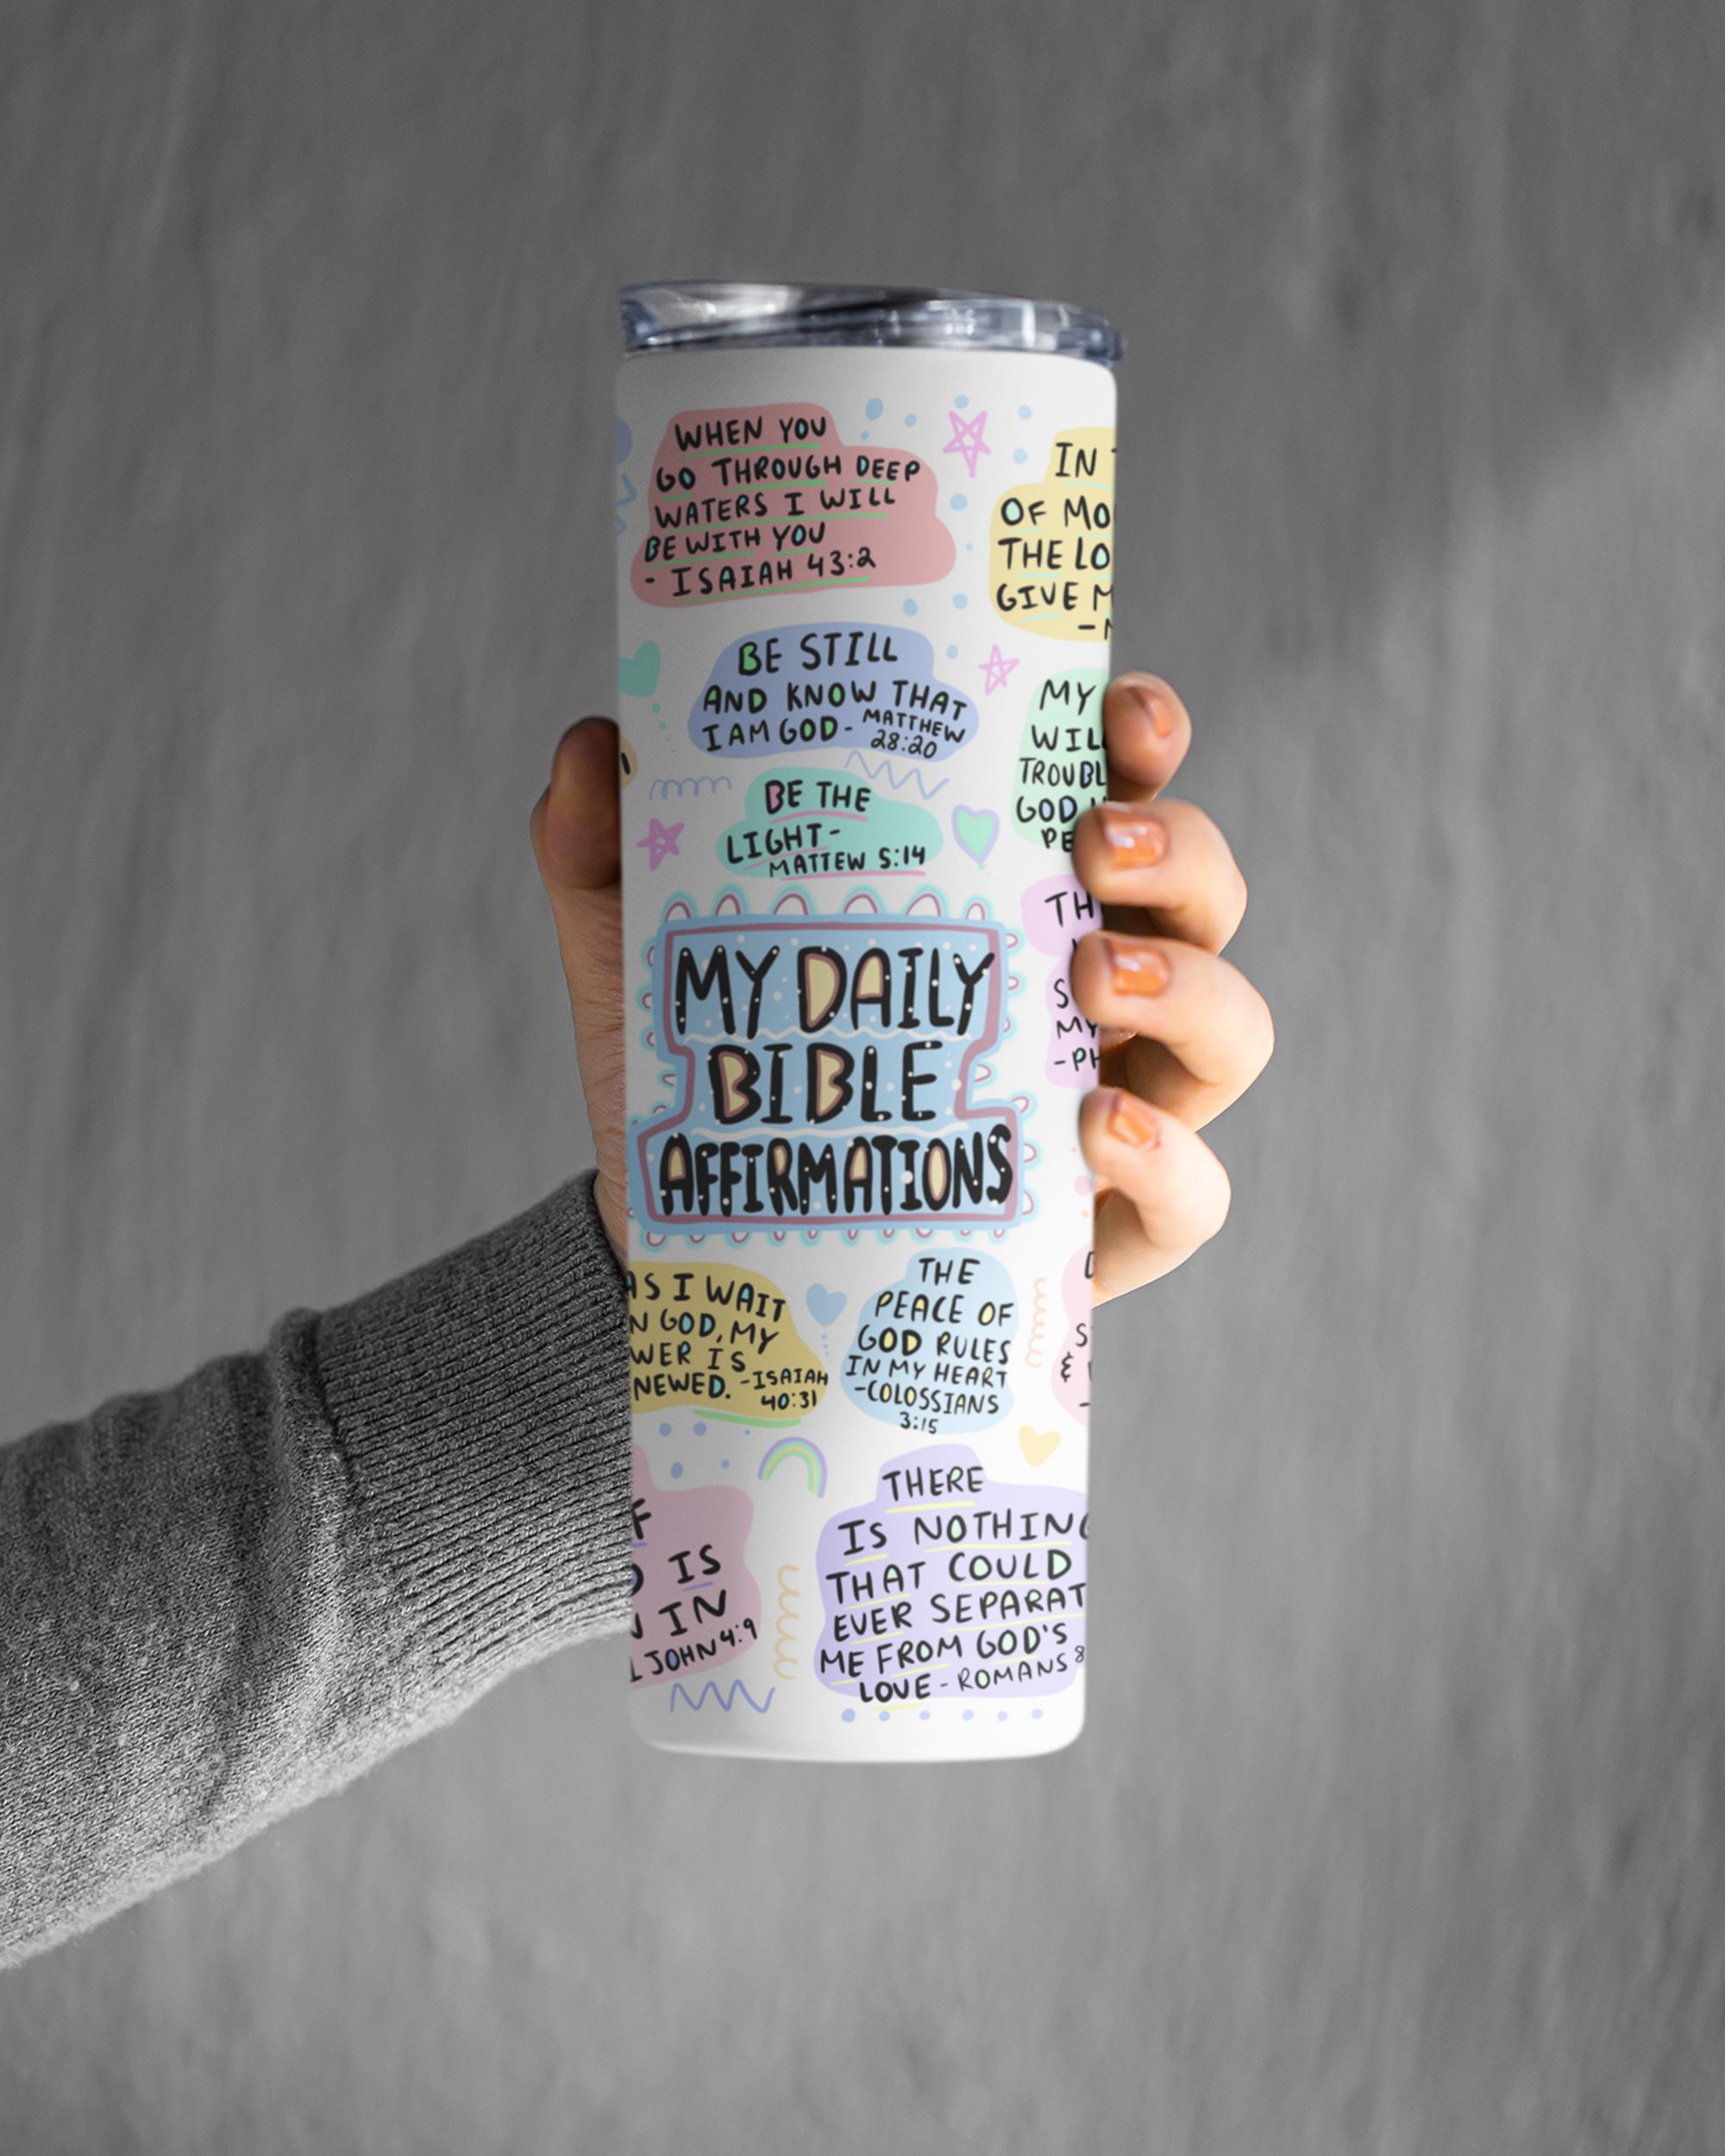 WHEN YOU
GO THROUGH DEEP
WATERS I WILL
BE WITH YOU
- ISAIAH 43:2
IN
OF MO
THE LO
GIVE M
BE STILL
AND KNOW THAT
I AM GOD - MATTHEW
28:20
MY
WIL
TROUBL
GOD
PE
BE THE
LIGHT -
MATTEW 5:14
TH
S
MY
-PH
MY DAILY
BIBLE
AFFIRMATIONS
AS I WAIT
N GOD, MY
WER IS
NEWED. -ISAIAH
40:31
THE
PEACE OF
GOD RULES
IN MY HEART
-COLOSSIANS
3:15
S
&
F
IS
IN
1 JOHN 4:9
THERE
IS NOTHING
THAT COULD
EVER SEPARAT
ME FROM GOD'S
LOVE - ROMANS 8